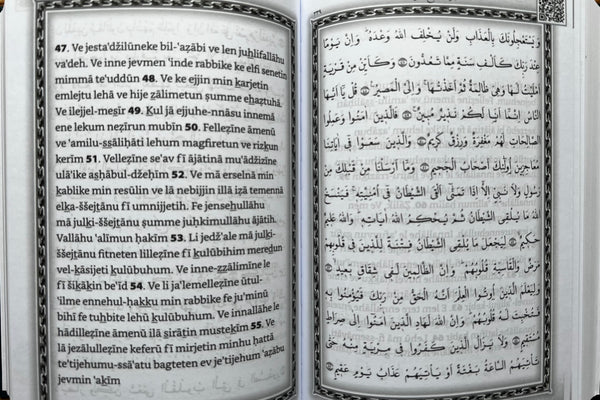 47. Ve jesta'džilūneke bil-'aẕābi ve len juḫlifallāhu
va'deh. Ve inne jevmen 'inde rabbike ke elfi senetin
mimmā te'uddūn 48. Ve ke ejjin min ḳarjetin
emlejtu lehā ve hije ẓālimetun ṣumme eḫaẕtuhā
Ve ilejjel-meṣīr 49. Ḳul jā ejjuhe-nnāsu innemā
ene lekum neẕīrun mubīn 50. Felleẕīne āmenū
ve 'amilu-ṣṣāliḥāti lehum magfiretun ve rizḳun
kerīm 51. Velleẕīne se'av fī ājātinā mu'ādžizīne
ulā'ike aṣḥābul-džeḥīm 52. Ve mā erselnā min
kablike min resūlin ve lā nebijjin illā iẕā temennā
elḳa-ššejṭānu fī umnijjetih. Fe jenseḫullāhu
mā julḳi-ššejṭānu ṣumme juḥkimullāhu ājātih.
Vallāhu 'alīmun ḥakīm 53. Li jedž'ale mā julḳi-
ššejṭānu fitneten lilleẕīne fī ḳulūbihim meredun
vel-ḳāsijeti ḳulūbuhum. Ve inne-ẓẓālimīne le
fī šiḳāḳin be'īd 54. Ve li ja'lemelleẕīne ūtul-
'ilme ennehul-ḥaḳḳu min rabbike fe ju'minū
bihī fe tuḫbite lehū ḳulūbuhum. Ve innallāhe le
hādilleẕīne āmenū ilā ṣirāṭin musteḳīm 55. Ve
lā jezālulleẕīne keferū fī mirjetin minhu ḥattā
te'tijehumu-ssā'atu bagteten ev je'tijehum 'aẕābu
jevmin 'aḳīm
وَيَسْتَعْجِلُونَكَ بِالْعَذَابِ وَلَنْ يُخْلِفَ اللهُ وَعْدَهُ ۚ وَإِنَّ يَوْمًا
عِنْدَ رَبِّكَ كَأَلْفِ سَنَةٍ مِمَّا تَعُدُّونَ ۝ وَكَأَيِّنْ مِنْ قَرْيَةٍ
أَمْلَيْتُ لَهَا وَهِيَ ظَالِمَةٌ ثُمَّ أَخَذْتُهَا ۚ وَإِلَيَّ الْمَصِيرُ ۝ قُلْ يَا أَيُّهَا
النَّاسُ إِنَّمَا أَنَا لَكُمْ نَذِيرٌ مُبِينٌ ۝ فَالَّذِينَ آمَنُوا وَعَمِلُوا
الصَّالِحَاتِ لَهُمْ مَغْفِرَةٌ وَرِزْقٌ كَرِيمٌ ۝ وَالَّذِينَ سَعَوْا فِي آيَاتِنَا
مُعَاجِزِينَ أُولَٰئِكَ أَصْحَابُ الْجَحِيمِ ۝ وَمَا أَرْسَلْنَا مِنْ قَبْلِكَ مِنْ
رَسُولٍ وَلَا نَبِيٍّ إِلَّا إِذَا تَمَنَّىٰ أَلْقَى الشَّيْطَانُ فِي أُمْنِيَّتِهِ ۚ فَيَنْسَخُ
اللهُ مَا يُلْقِي الشَّيْطَانُ ثُمَّ يُحْكِمُ اللهُ آيَاتِهِ ۗ وَاللهُ عَلِيمٌ
حَكِيمٌ ۝ لِيَجْعَلَ مَا يُلْقِي الشَّيْطَانُ فِتْنَةً لِلَّذِينَ فِي قُلُوبِهِمْ
مَرَضٌ وَالْقَاسِيَةِ قُلُوبُهُمْ ۗ وَإِنَّ الظَّالِمِينَ لَفِي شِقَاقٍ بَعِيدٍ ۝
وَلِيَعْلَمَ الَّذِينَ أُوتُوا الْعِلْمَ أَنَّهُ الْحَقُّ مِنْ رَبِّكَ فَيُؤْمِنُوا بِهِ
فَتُخْبِتَ لَهُ قُلُوبُهُمْ ۗ وَإِنَّ اللهَ لَهَادِ الَّذِينَ آمَنُوا إِلَىٰ صِرَاطٍ
مُسْتَقِيمٍ ۝ وَلَا يَزَالُ الَّذِينَ كَفَرُوا فِي مِرْيَةٍ مِنْهُ حَتَّىٰ
تَأْتِيَهُمُ السَّاعَةُ بَغْتَةً أَوْ يَأْتِيَهُمْ عَذَابُ يَوْمٍ عَقِيمٍ ۝